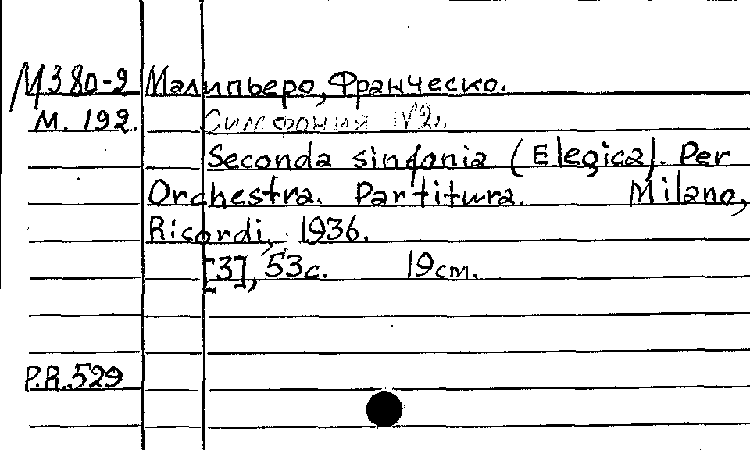 М380-2 Малипьеро, Франческо.
М. 192. Симфония №2.
Seconda sinfonia (Elegica). Per
Orchestra. Partitura. Milano,
Ricordi, 1936.
[3], 53с. 19см.
P.R.529